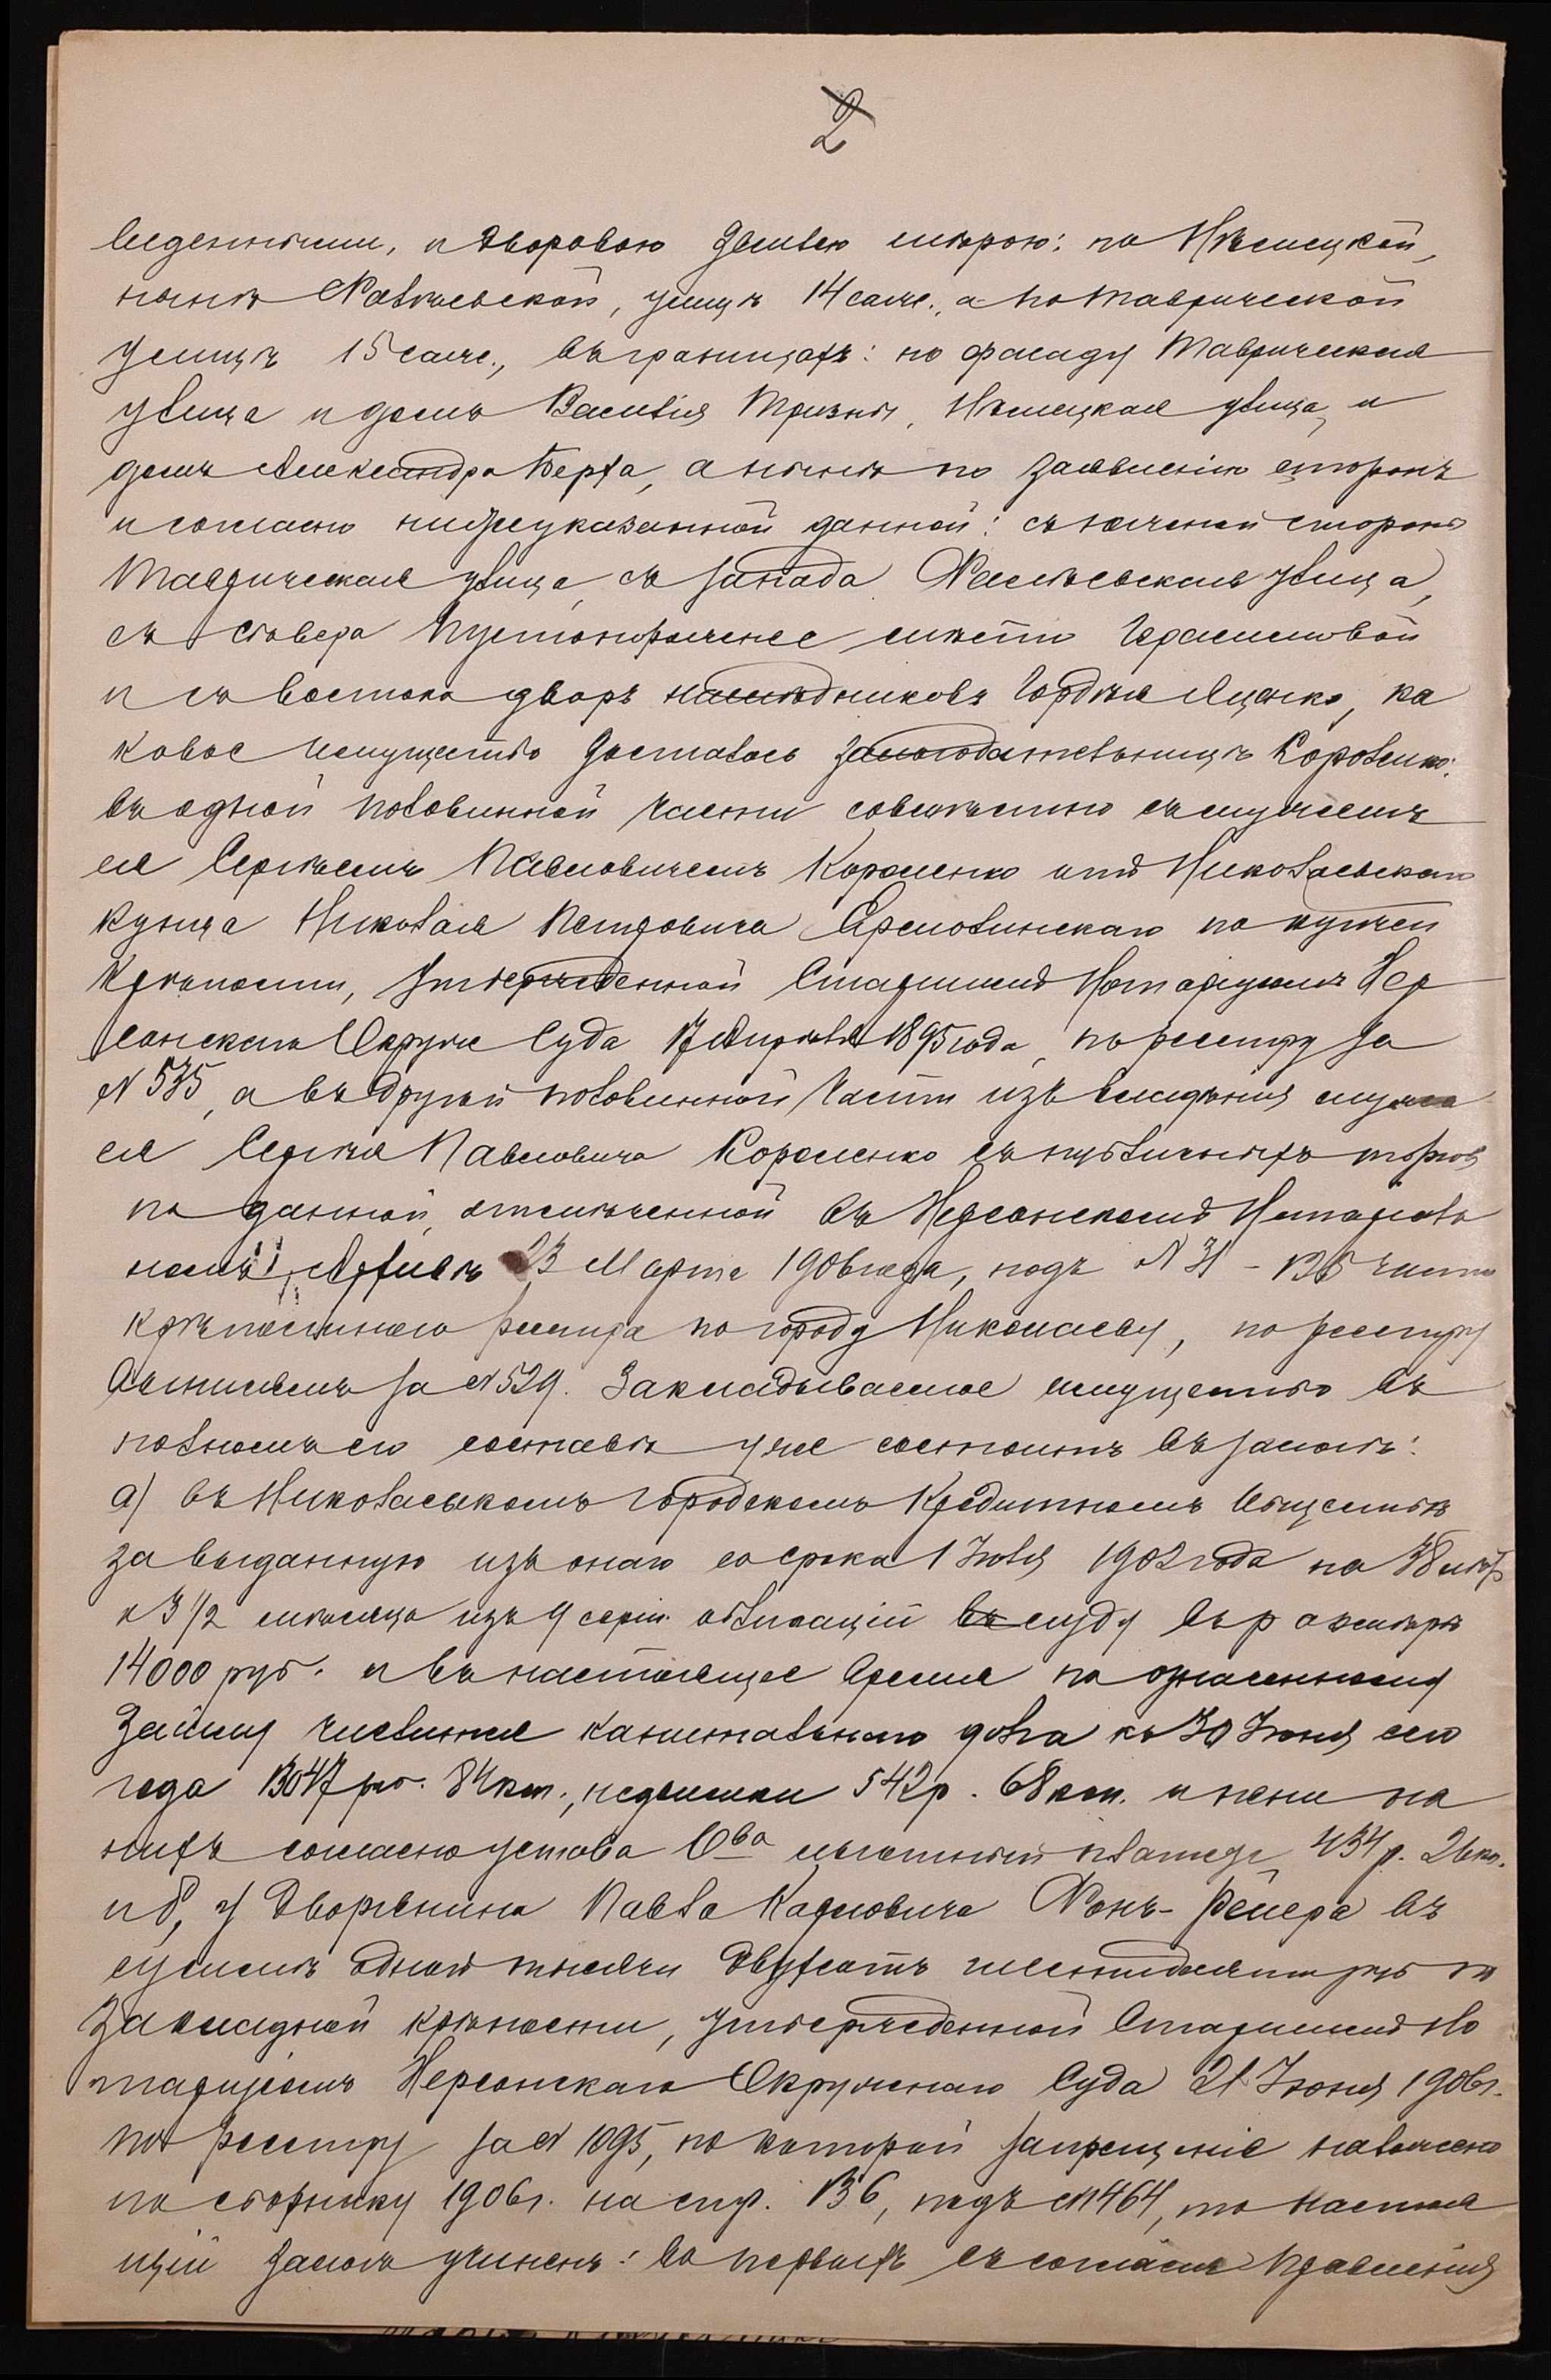 2
веденіями, и дворовою землею мѣрою: по Нѣмецкой,
нынѣ Фалѣевской, улицѣ 14 саж., а по Таврической
улицѣ 15 саж., въ границахъ: по фасаду Таврическая
улица и домъ Василія Тризны, Нѣмецкая улица, и
домъ Александра Берха, а нынѣ по заявленію сторонъ
и согласно нижеуказанной данной: съ южной стороны
Таврическая улица, съ запада Фалѣевская улица,
съ сѣвера пустопорожнее мѣсто Герасимовой
и съ востока дворъ наслѣдниковъ Гордѣя Яценко, ка
ковое имущество досталось залогодательницѣ Короленко:
въ одной половинной части совмѣстно съ мужемъ
ея Сергѣемъ Павловичемъ Короленко отъ Николаевскаго
купца Николая Петровича Ярмолинскаго по купчей
крѣпости, утвержденной Старшимъ Нотаріусомъ Хер
сонскаго Окружн. Суда 17 Апрѣля 1895 года, по реестру за
№ 535, а въ другой половинной части изъ владѣнія мужа
ея Сергѣя Павловича Короленко съ публичныхъ торговъ
по данной, отмѣченной въ Херсонскомъ Нотаріаль
номъ Архивѣ 23 Марта 1906 года, подъ № 31 - части
крѣпостного реестра по городу Николаеву, по реестру
за № 529. Закладываемое имущество въ
полномъ его составѣ уже состоитъ въ залогѣ:
а) въ Николаевскомъ Городскомъ Кредитномъ Обществѣ
за выданную изъ онаго со срока 1 Іюля 1902 года на 38 лѣтъ
и 3 1/2 мѣсяца изъ 4 серіи облигацій ссуду въ размѣрѣ
14000 руб. и въ настоящее время по означенному
займу числится капитальнаго долга къ 30 Іюня сего
года 13047 руб. 84 коп., недоимки 542 р. 68 коп. и пени на
нихъ согласно устава О-ва льготный платежъ 434 р. 26 коп.
и б, у Дворянина Павла Карловича Фонъ-Рёмера въ
суммѣ одной тысячи двухсотъ шестидесяти руб по
закладной крѣпости, утвержденной Старшимъ Но
таріусомъ Херсонскаго Окружнаго Суда 21 Іюня 1906 г.
по реестру за № 1095, по которой запрещеніе наложено
по сборнику 1906 г. на стр. 136, подъ № 464, то настоя
щій залогъ учиненъ: во первыхъ съ согласія Правленія